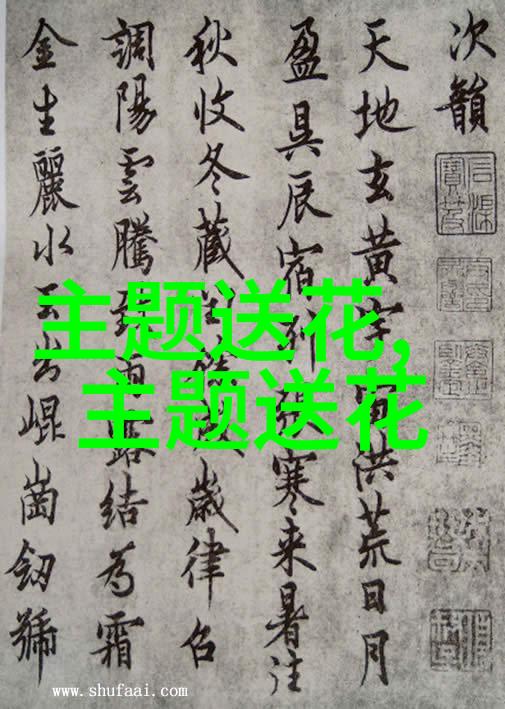 次韻
天地玄黄宇宙洪荒日月
盈昃辰宿列張寒来暑往
秋收冬蔵閏餘成歳律召
調陽雲騰致雨露結為霜
金生麗水玉出崐崗劒號
主题送花,
主题送花
www.shufaai.com